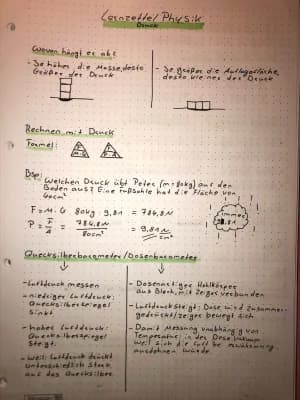 Lernzettel Physik
Druck
Wovon hängt es ab?
- Je höher die Masse, desto
Größer der Druck
- Je größer die Auflagefläche,
desto kleiner der Druck
Rechnen mit Druck
Formel:
Bsp: Welchen Druck übt Peter (m=80kg) aus den
Boden aus? Eine Fußsohle hat die Fläche von
40cm²
F = M · G 80kg · 9,81 = 784,8N
P = F/A = 784,8N / 80cm² = 9,81 N/cm²
immer
9,81
Quecksilberbarometer/Dosenbarometer
- Luftdruck messen
- niedriger Luftdruck:
Quecksilberspiegel
sinkt
- hoher Luftdruck:
Quecksilberspiegel
steigt.
- weil: Luftdruck drückt
unterschiedlich stark
auf das Quecksilber
- Dosenartiger Hohlkörper
aus Blech, mit Zeiger verbunden
- Luftdruck steigt: Dose wird zusammen-
gedrückt/zeiger bewegt sich
- Damit Messung unabhängig von
Temperatur: in der Dose Vakuum
weil sich die Luft bei
ausdehnen würde